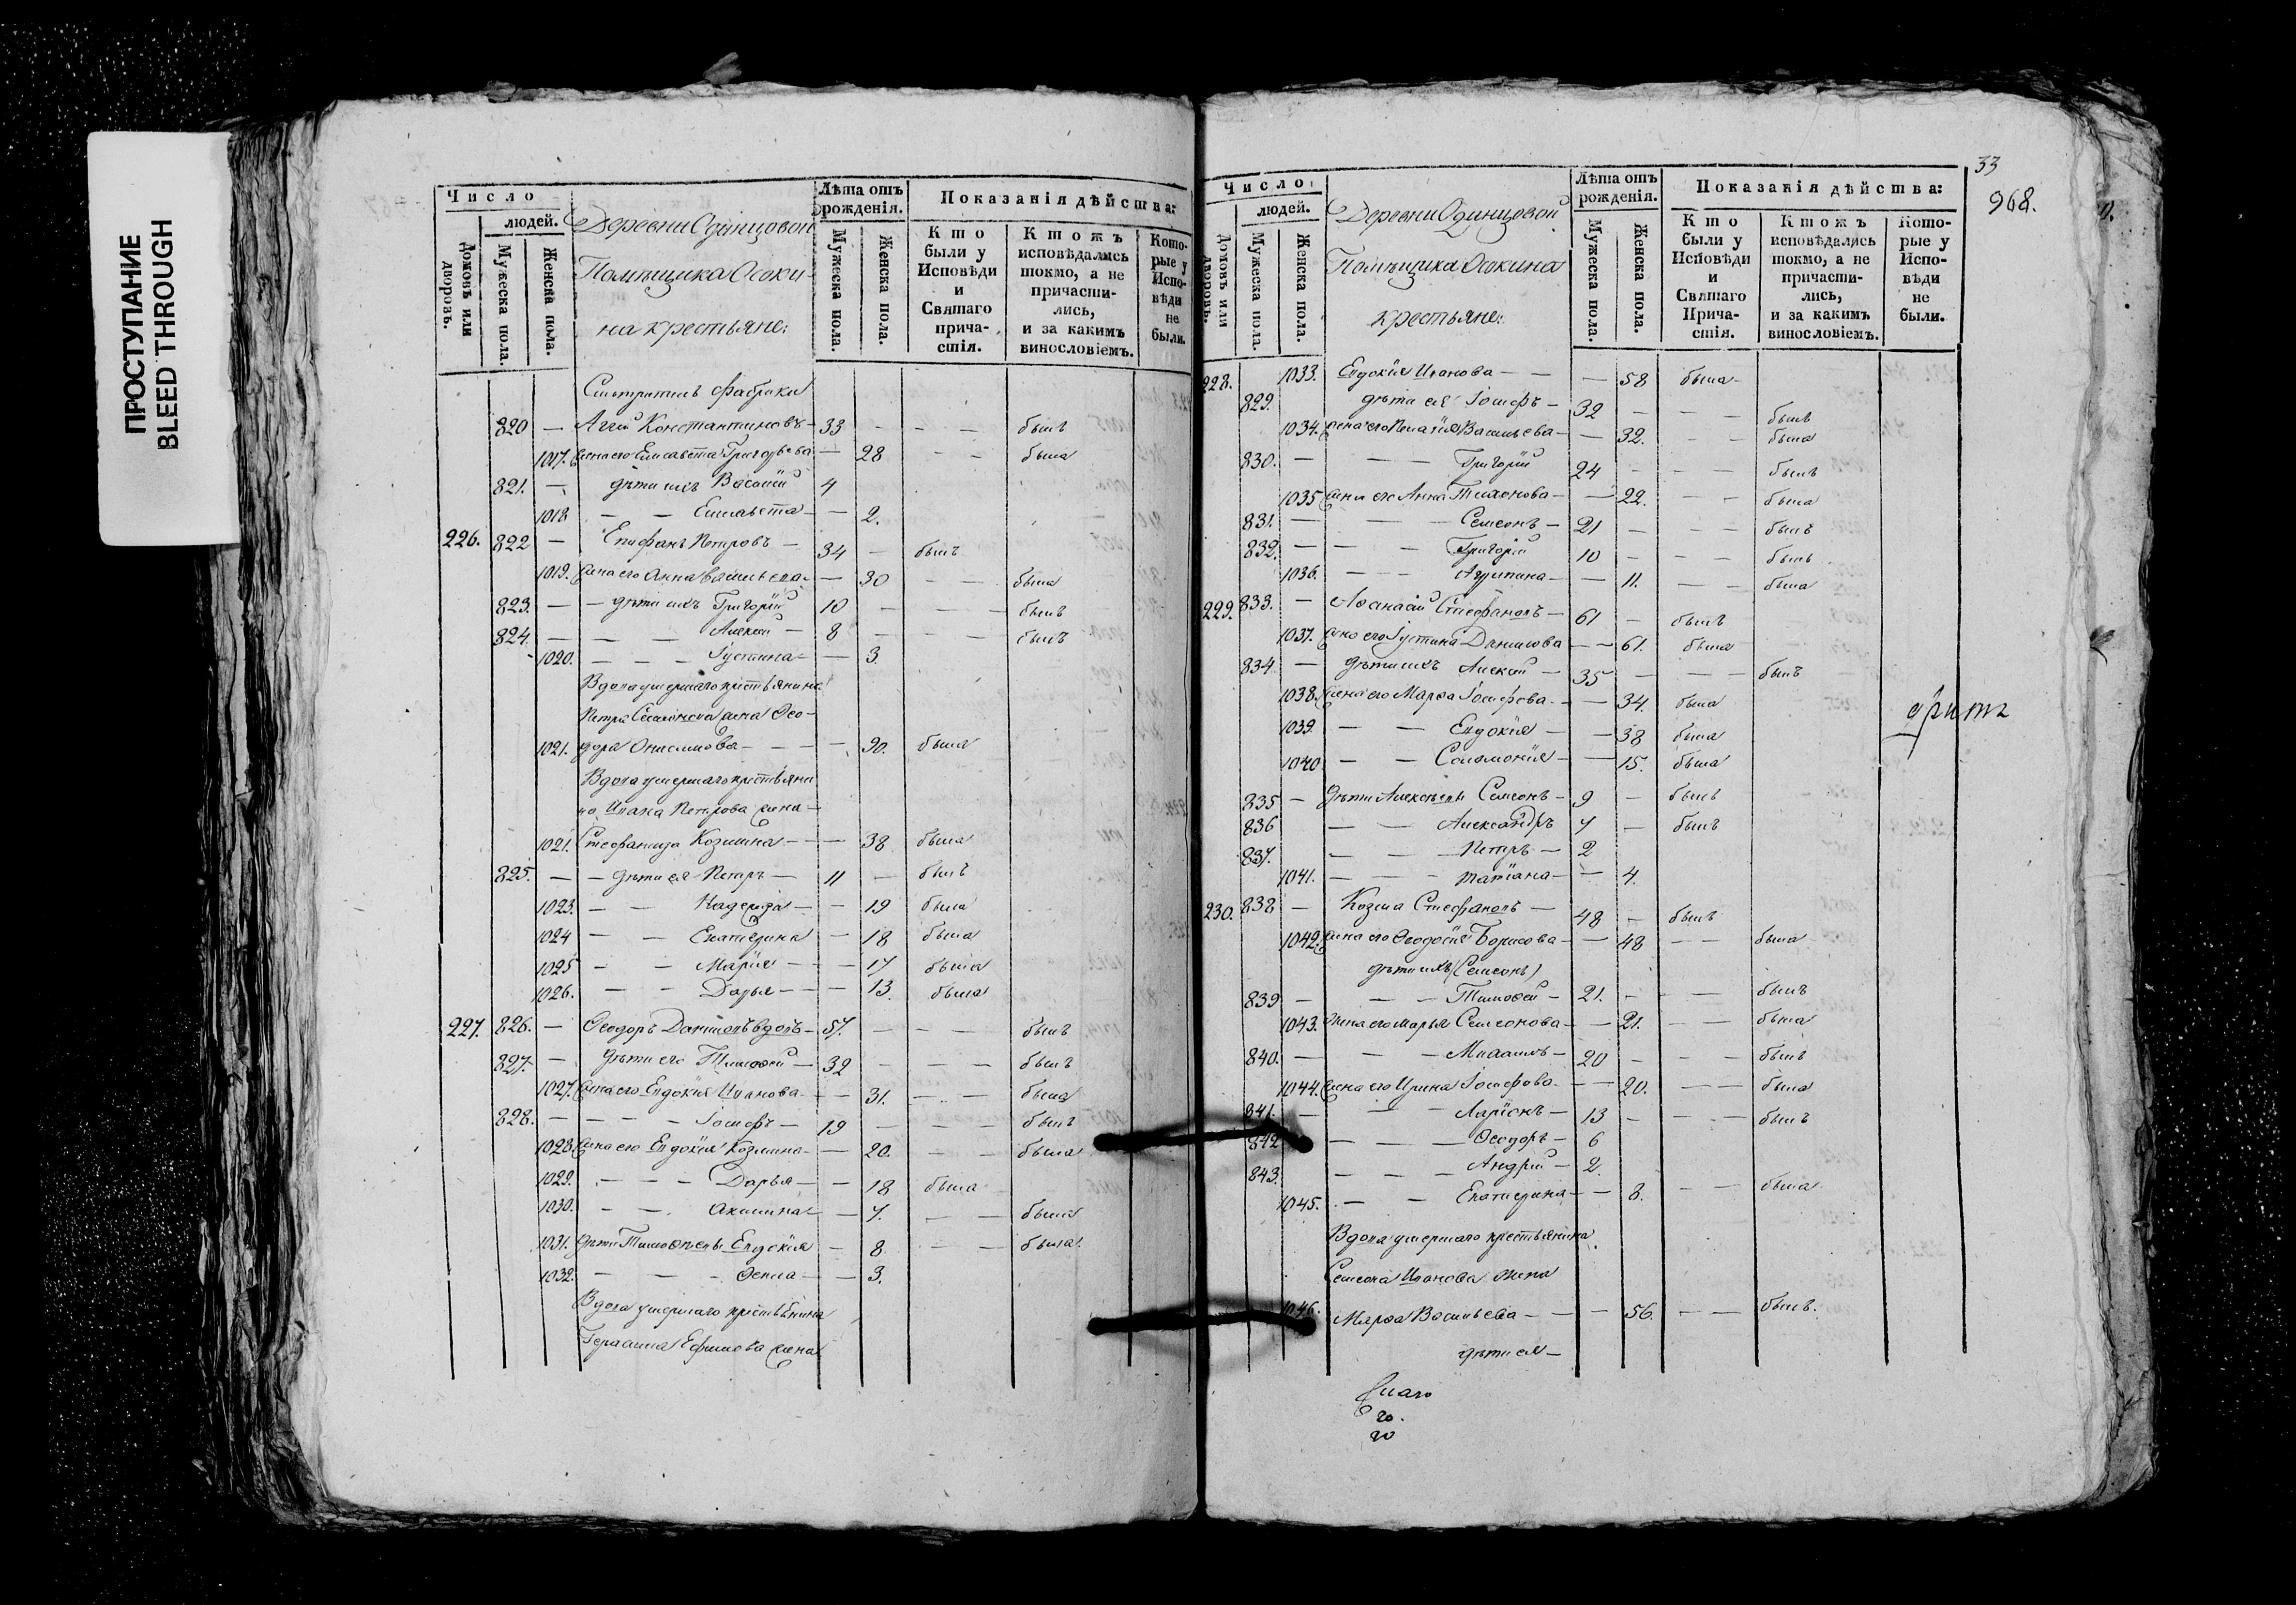 ПРОСТУПАНИЕ
BLEED THROUGH
Число
людей.
Домовъ или дворовъ.
Мужеска пола.
Женска пола.
Деревни Одинцовой
Помѣщика Осоки-
на крестьяне:
Лѣта отъ рожденія.
Мужеска пола.
Женска пола.
Показанія дѣйства:
Кто были у Исповѣди и Святаго причастія.
Ктожъ исповѣдались токмо, а не причастились, и за какимъ винословіемъ.
Которые у Исповѣди не были.
Смотритель фабрики
820 — Аггій Константиновъ — 33 — — — былъ
1017. жена его Елисавета Григорьева — 28 — — была
821. — дѣти ихъ Василій 4
1018 — — Елисавета — — 2.
226. 822 — Епифанъ Петровъ — 34 — былъ
1019. жена его Анна Васильева — — 30 — — была
823. — — дѣти ихъ Григорій 10 — — — былъ
824. — — — Алексѣй — 8 — — — былъ
1020. — — — Іустина — — 3.
Вдова умершаго крестьянина
Петра Симонова жена Ѳео-
1021. дора Онисимова — — — 90. была
Вдова умершаго крестьяни
на Ивана Петрова жена —
1021. Стефанида Козмина — — 38 была
825. — — дѣти ея Петръ — 11 — былъ
1023. — — Надежда — — 19 была
1024 — — Екатерина — 18 была
1025 — — Марія — — 17 была
1026. — — Дарья — — 13. была
227. 826. — Ѳеодоръ Даниловъ вдовъ — 57. — — — былъ
827. — дѣти его Тимоѳей — 32 — — — былъ
1027. жена его Евдокія Иванова — — 31. — — была
828. — — — Іосифъ — 19 — — — былъ
1028. жена его Евдокія Козмина — — 20. — — была
1029. — — — Дарья — — 18 была
1030. — — Акилина — — 7. — — была
1031. дѣти Тимоѳеевы Евдокія — 8. — — была.
1032. — — — Ѳекла — — 3.
Вдова умершаго крестьянина
Герасима Ефимова жена
33
968.
Число
людей.
Домовъ или дворовъ.
Мужеска пола.
Женска пола.
Деревни Одинцовой
Помѣщика Осокина
крестьяне:
Лѣта отъ рожденія.
Мужеска пола.
Женска пола.
Показанія дѣйства:
Кто были у Исповѣди и Святаго Причастія.
Ктожъ исповѣдались токмо, а не причастились, и за какимъ винословіемъ.
Которые у Исповѣди не были.
228. 1033. Евдокія Иванова — — — 58 была —
829. дѣти ея Іосифъ — 32 — — — былъ
1034. жена его Пелагія Васильева — — 32. — — была
830. — — — Григорій 24 — — — былъ
1035 жена его Анна Тихонова — — 22. — — была
831. — — — Симеонъ — 21 — — былъ
832. — — — Григорій 10 — — — былъ
1036. — — Агрипина — — 11. — — была
229. 833. — Аѳанасій Стефановъ — 61 — былъ
1037. жена его Іустина Данилова — — 61. была
834 — дѣти ихъ Алексѣй — 35 — — — былъ
1038. жена его Марѳа Іосифова — — 34. была
1039. — — Евдокія — — 38 была
1040 — — Соломонія — — 15. была
835 — дѣти Алексѣевы Симеонъ — 9 — былъ
836 — — Александръ 7 — былъ
837. — — — Петръ — 2
1041. — — — Татіана — — 4.
230. 838 — Козма Стефановъ — 48 — былъ
1042. жена его Ѳеодосія Борисова — — 48 — — была
дѣти ихъ (Симеонъ)
839 — — — Тимоѳей — 21. — — — былъ
1043. жена его Марья Симеонова — — 21. — — была
840. — — — Михаилъ — 20 — — — былъ
1044. жена его Ирина Іосифова — — 20. — — была
841. — — — Ларіонъ — 13 — — былъ
842 — — — Ѳеодоръ — 6
843. — — — Андрей — 2.
1045. — — Екатерина — — 8. — — была
Вдова умершаго крестьянина
Симеона Иванова жена
1046. Марѳа Васильева — — — 56. — — былъ.
дѣти ея —